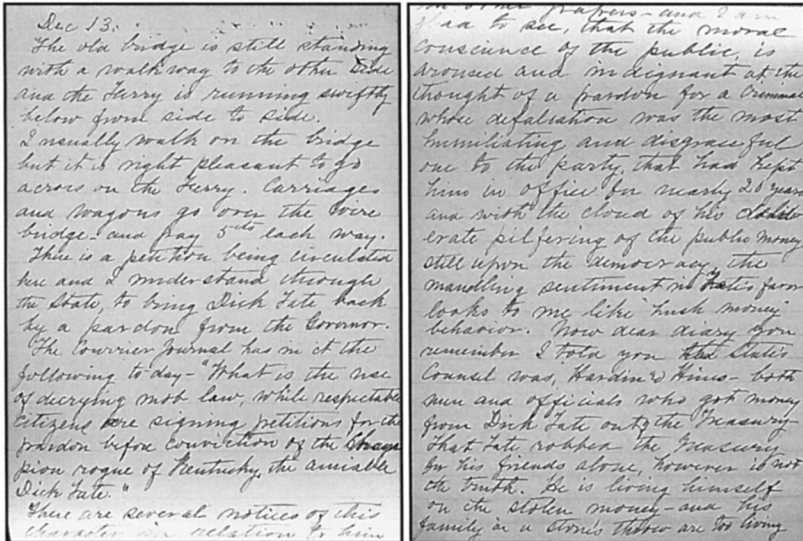 Dec 13.
The old bridge is still standing
with a walk way to the other side
and the Ferry is running swiftly
below from side to side.
I usually walk on the bridge
but it is right pleasant to go
across on the Ferry. Carriages
and wagons go over the wire
bridge - and pay 5 cts each way.
There is a petition being circulated
here and I understand through
the State, to bring Dick Tate back
by a pardon from the Governor.
The Courier Journal has in it the
following to day - "What is the use
of decrying mob law, while respectable
Citizens are signing petitions for the
pardon before conviction of the Cham
pion rogue of Kentucky, the amiable
Dick Tate."
There are several notices of this
character in relation to him
in other papers - and I am
glad to see, that the moral
conscience of the public, is
aroused and indignant at the
thought of a pardon for a Criminal
whose defalcation was the most
humiliating and disgraceful
one to the party, that had kept
him in office for nearly 20 years
and with the cloud of his delib
erate pilfering of the public money
still upon the democracy, the
maudling sentiment in Tate's favor
looks to me like "hush money"
behavior. Now dear diary you
remember I told you State's
Counsel was, Hardin & Hines - both
men and officials who got money
from Dick Tate out of the Treasury -
That Tate robbed the Treasury
for his friends alone, however is not
the truth. He is living himself
on the stolen money - and his
family in a stone's throw are too living